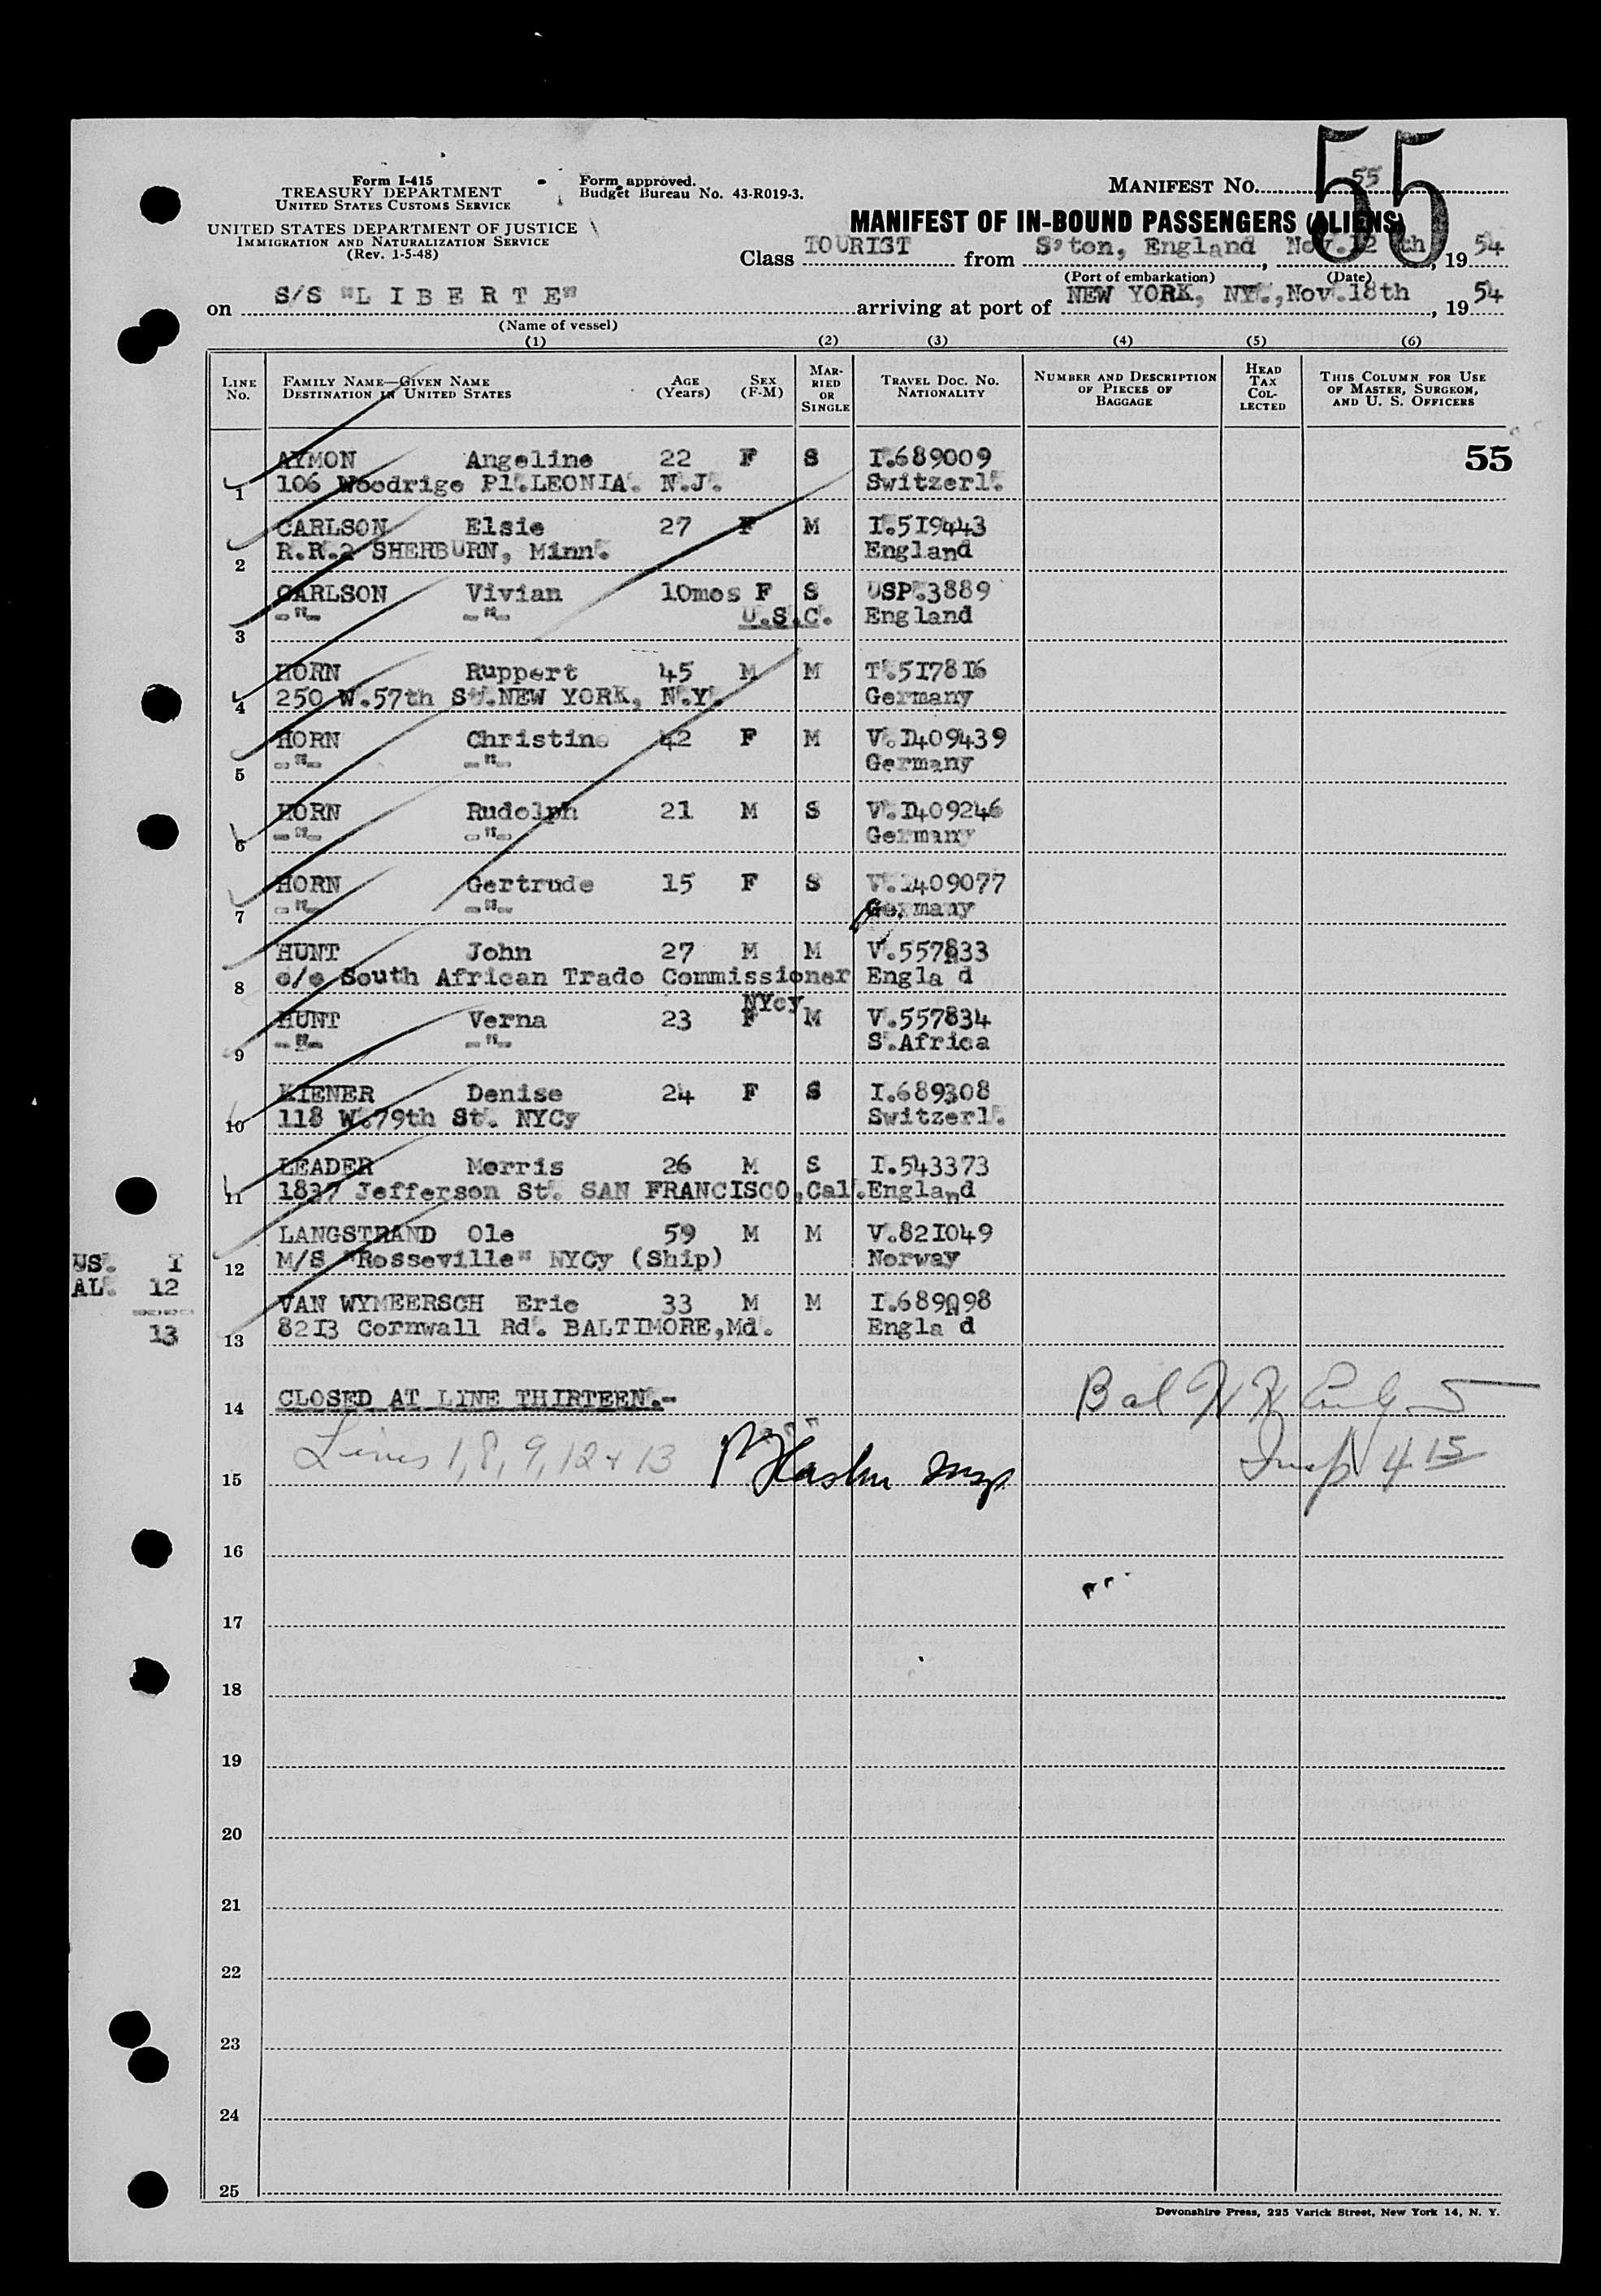 55
Form I-415
TREASURY DEPARTMENT
UNITED STATES CUSTOMS SERVICE
Form approved.
Budget Bureau No. 43-R019-3.
MANIFEST NO. 55
UNITED STATES DEPARTMENT OF JUSTICE
IMMIGRATION AND NATURALIZATION SERVICE
(Rev. 1-5-48)
MANIFEST OF IN-BOUND PASSENGERS (ALIENS)
Class TOURIST from S'ton, England, Nov. 12 th, 1954
(Port of embarkation) (Date)
on S/S "L I B E R T E" arriving at port of NEW YORK, NY., Nov.18th, 1954
(Name of vessel)
(1) (2) (3) (4) (5) (6)
LINE No. FAMILY NAME—GIVEN NAME DESTINATION IN UNITED STATES AGE (Years) SEX (F-M) MARRIED OR SINGLE TRAVEL DOC. NO. NATIONALITY NUMBER AND DESCRIPTION OF PIECES OF BAGGAGE HEAD TAX COLLECTED THIS COLUMN FOR USE OF MASTER, SURGEON, AND U. S. OFFICERS
55
AYMON Angeline 22 F S I.689009
1 106 Woodrige Pl.LEONIA. N.J. Switzerl.
CARLSON Elsie 27 F M I.519443
2 R.R.2 SHERBURN, Minn. England
CARLSON Vivian 10mos F S USP.3889
3 -"- -"- U.S.C. England
HORN Ruppert 45 M M T.517816
4 250 W.57th St.NEW YORK, N.Y. Germany
HORN Christine 42 F M V.D409439
5 -"- -"- Germany
HORN Rudolph 21 M S V.D409246
6 -"- -"- Germany
HORN Gertrude 15 F S V.D409077
7 -"- -"- Germany
HUNT John 27 M M V.557833
8 c/o South African Trade Commissioner Engla d
NYcy
HUNT Verna 23 F M V.557834
9 -"- -"- S.Africa
KIENER Denise 24 F S I.689308
10 118 W.79th St. NYCy Switzerl.
LEADER Morris 26 M S I.543373
11 1837 Jefferson St. SAN FRANCISCO,Cal. England
LANGSTRAND Ole 59 M M V.821049
12 M/S "Rosseville" NYCy (Ship) Norway
US. 1
AL. 12
13
VAN WYMEERSCH Eric 33 M M I.689098
13 8213 Cornwall Rd. BALTIMORE,Md. Engla d
14 CLOSED AT LINE THIRTEEN.-
Bal
15 Lines 1,8,9,12 + 13 Insp
Insp 4 15
16
17
18
19
20
21
22
23
24
25
Devonshire Press, 225 Varick Street, New York 14, N. Y.